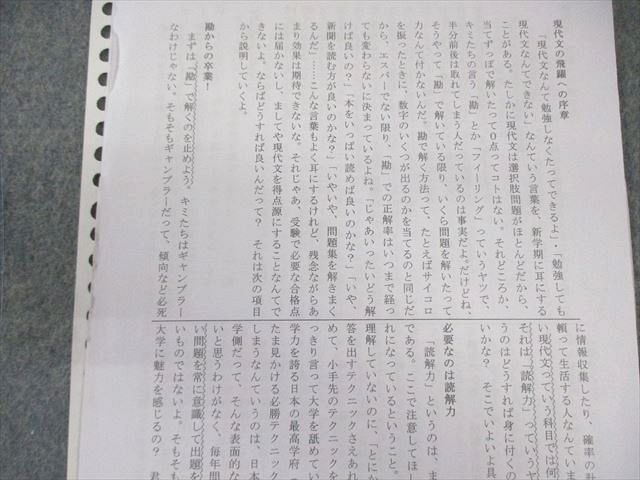 現代文の飛躍への序章
「現代文なんて勉強しなくたってできるよ」・「勉強しても
現代文なんてできない」なんていう言葉を、新学期に耳にする
ことがある。たしかに現代文は選択肢問題がほとんどだから、
当てずっぽで解いたって０点ってコトはない。それどころか、
キミたちの言う「勘」とか「フィーリング」っていうヤツで、
半分前後は取れてしまう人だっているのは事実だよ。だけどね、
そうやって「勘」で解いている限り、いくら問題を解いたって
力なんて付かないんだ。勘で解く方法って、たとえばサイコロ
を振ったときに、数字のいくつが出るのかを当てるのと同じだ
から、エスパーでない限り、「勘」での正解率はいつまで経っ
ても変わらないに決まっているよね。「じゃあいったいどう解
けば良いの？」「本をいっぱい読めば良いのかな？」「いや、
新聞を読む方が良いのかな？」「いやいや、問題集を解きまく
るんだ」……こんな言葉もよく耳にするけれど、残念ながらあ
まり効果は期待できないな。それじゃあ、受験で必要な合格点
には届かないし、ましてや現代文を得点源にすることなんてで
きないよ。ならばどうすれば良いんだって？　それは次の項目
から説明していくよ。
勘からの卒業！
まずは「勘」で解くのを止めよう。キミたちはギャンブラー
なわけじゃない。そもそもギャンブラーだって、傾向など必死
に情報収集したり、確率の計
頼って生活する人なんていま
い現代文っていう科目では何
それは「読解力」っていうヤ
うのはどうすれば身に付くの
いかな？　そこでいよいよ具
必要なのは読解力
「読解力」というのは、ま
である。ここで注意してほし
れになっているということ。
理解していないのに、「とにか
答を出すテクニックさえあれ
めて、小手先のテクニックを
っきり言って大学を舐めてい
学力を誇る日本の最高学府（
たま見かける必勝テクニック
しまうなんていうのは、日本
学側だって、そんな表面的な
いと思うわけがなく、毎年間
い問題を常に意識して出題を
いものではないよ。そもそも
大学に魅力を感じるの？　君